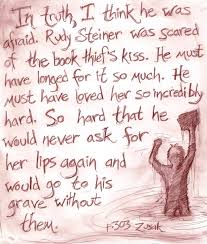 In truth, I think he was
afraid. Rudy Steiner was scared
of the book thief's kiss. He must
have longed for it so much. He
must have loved her so incredibly
hard. So hard that he
would never ask for
her lips again and
would go to his
grave without
them.
P.303 Zusak